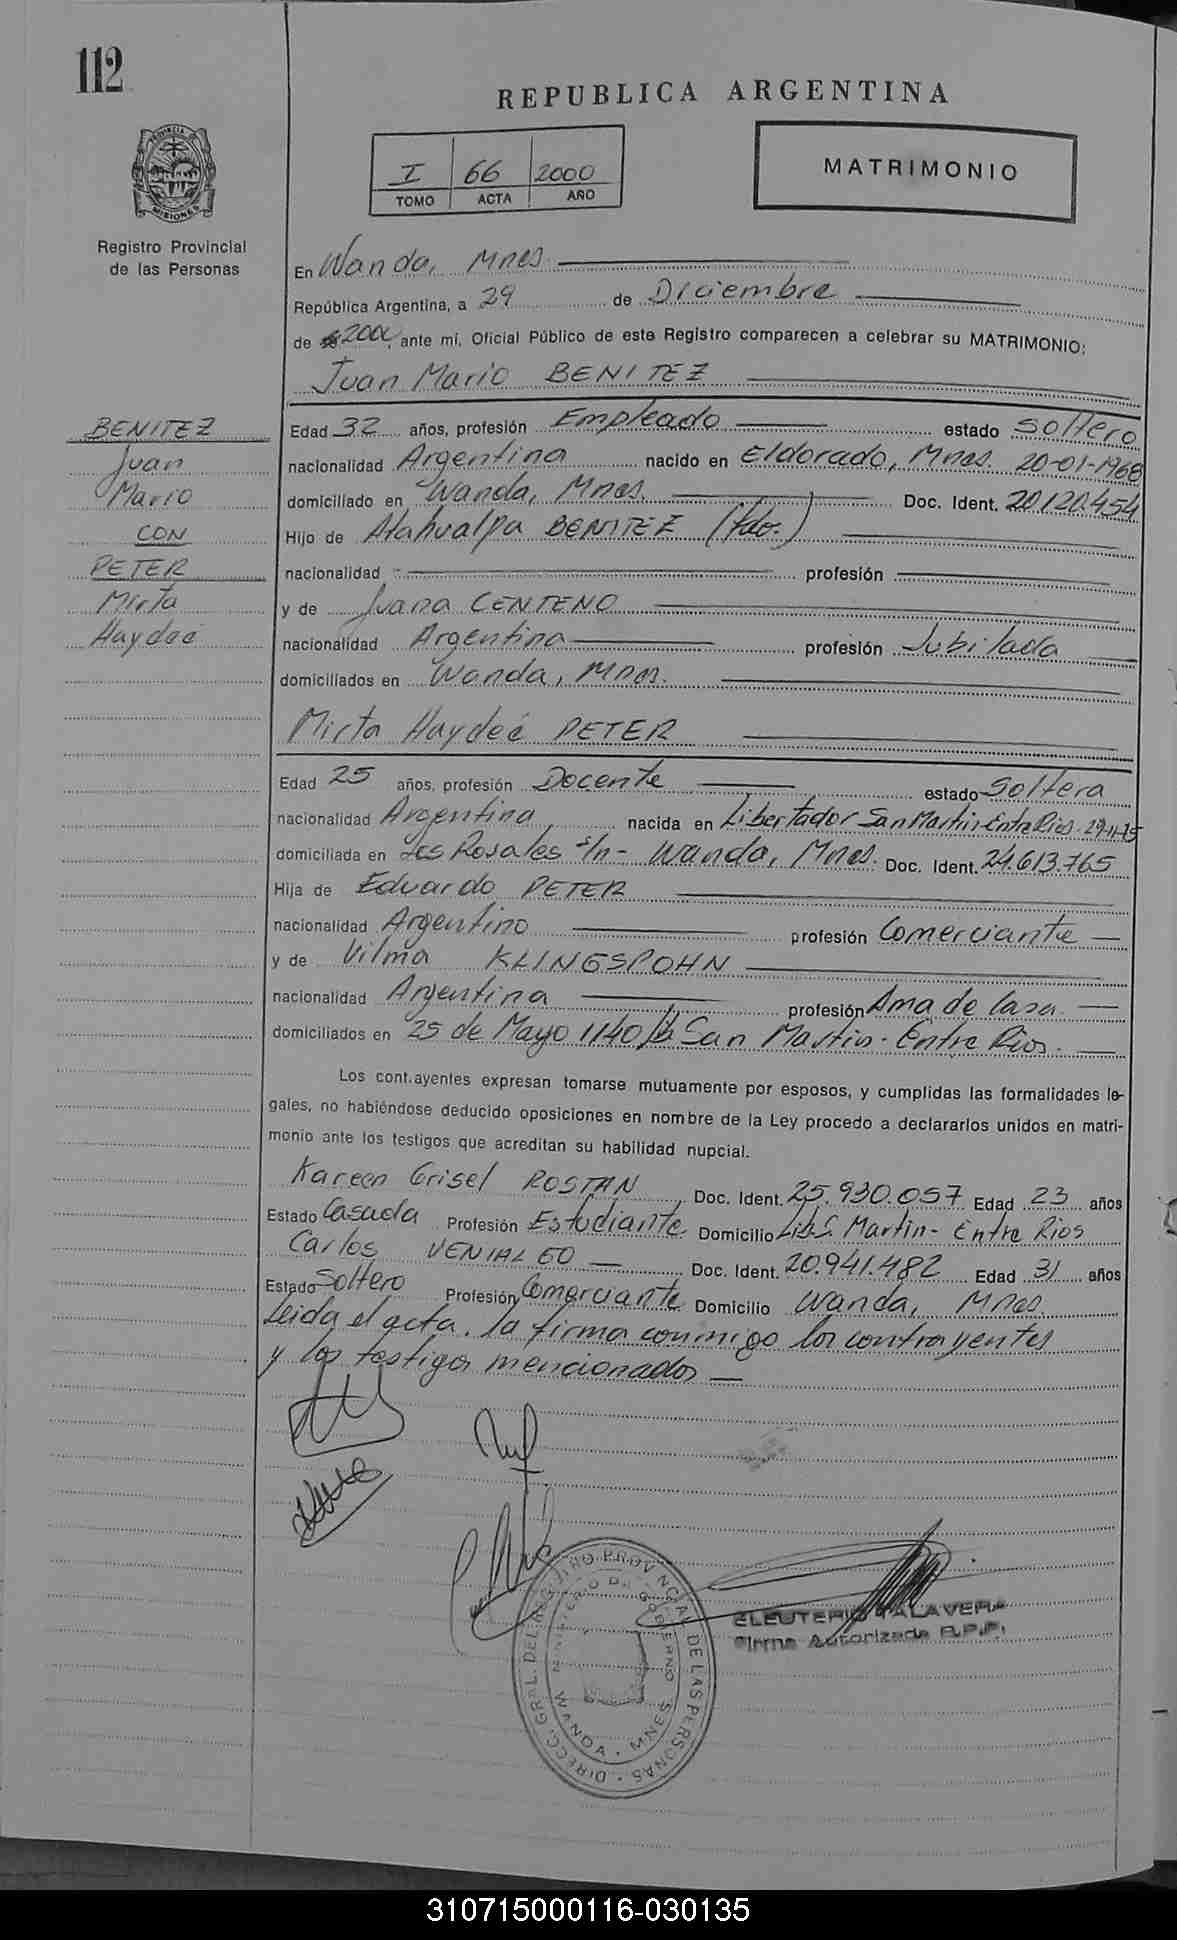 112
REPUBLICA ARGENTINA
PROVINCIA DE
MISIONES
I 66 2000
TOMO ACTA AÑO
MATRIMONIO
Registro Provincial
de las Personas
En Wanda, Mnes
República Argentina, a 29 de Diciembre
de 2000, ante mí, Oficial Público de este Registro comparecen a celebrar su MATRIMONIO:
Juan Mario BENITEZ
BENITEZ
Juan
Mario
CON
PETER
Mirta
Haydeé
Edad 32 años, profesión Empleado estado Soltero
nacionalidad Argentina nacido en Eldorado, Mnes. 20-01-1968
domiciliado en Wanda, Mnes. Doc. Ident. 20.120.454
Hijo de Atahualpa BENITEZ (fdo.)
nacionalidad profesión
y de Juana CENTENO
nacionalidad Argentina profesión Jubilada
domiciliados en Wanda, Mnes.
Mirta Haydeé PETER
Edad 25 años, profesión Docente estado Soltera
nacionalidad Argentina nacida en Libertador San Martin Entre Rios. 29-11-75
domiciliada en Los Rosales s/n - Wanda, Mnes. Doc. Ident. 24.613.765
Hija de Eduardo PETER
nacionalidad Argentino profesión Comerciante
y de Vilma KLINGSPOHN
nacionalidad Argentina profesión Ama de Casa
domiciliados en 25 de Mayo 1140 San Martin - Entre Rios.
Los cont.ayentes expresan tomarse mutuamente por esposos, y cumplidas las formalidades le-
gales, no habiéndose deducido oposiciones en nombre de la Ley procedo a declararlos unidos en matri-
monio ante los testigos que acreditan su habilidad nupcial.
Kareen Grisel ROSTAN Doc. Ident. 25.930.057 Edad 23 años
Estado Casada Profesión Estudiante Domicilio Lib. S. Martin - Entre Rios
Carlos VENIALGO Doc. Ident. 20.941.482 Edad 31 años
Estado Soltero Profesión Comerciante Domicilio Wanda, Mnes.
Leida el acta, la firma conmigo los contrayentes
y los testigos mencionados
DIRECC. GRAL. DEL REGISTRO PROVINCIAL DE LAS PERSONAS
MINISTERIO DE GOBIERNO
WANDA - MNES
ELEUTERIO TALAVERA
Firma Autorizada R.P.P.
310715000116-030135